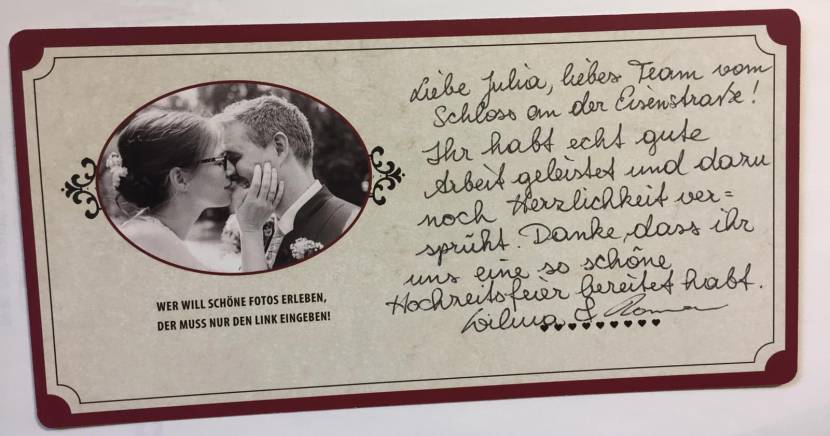 Liebe Julia, liebes Team vom
Schloss an der Eisenstraße!
Ihr habt echt gute
Arbeit geleistet und dazu
noch Herzlichkeit ver=
sprüht. Danke, dass ihr
uns eine so schöne
Hochzeitsfeier bereitet habt.
Wilma & Roman
WER WILL SCHÖNE FOTOS ERLEBEN,
DER MUSS NUR DEN LINK EINGEBEN!